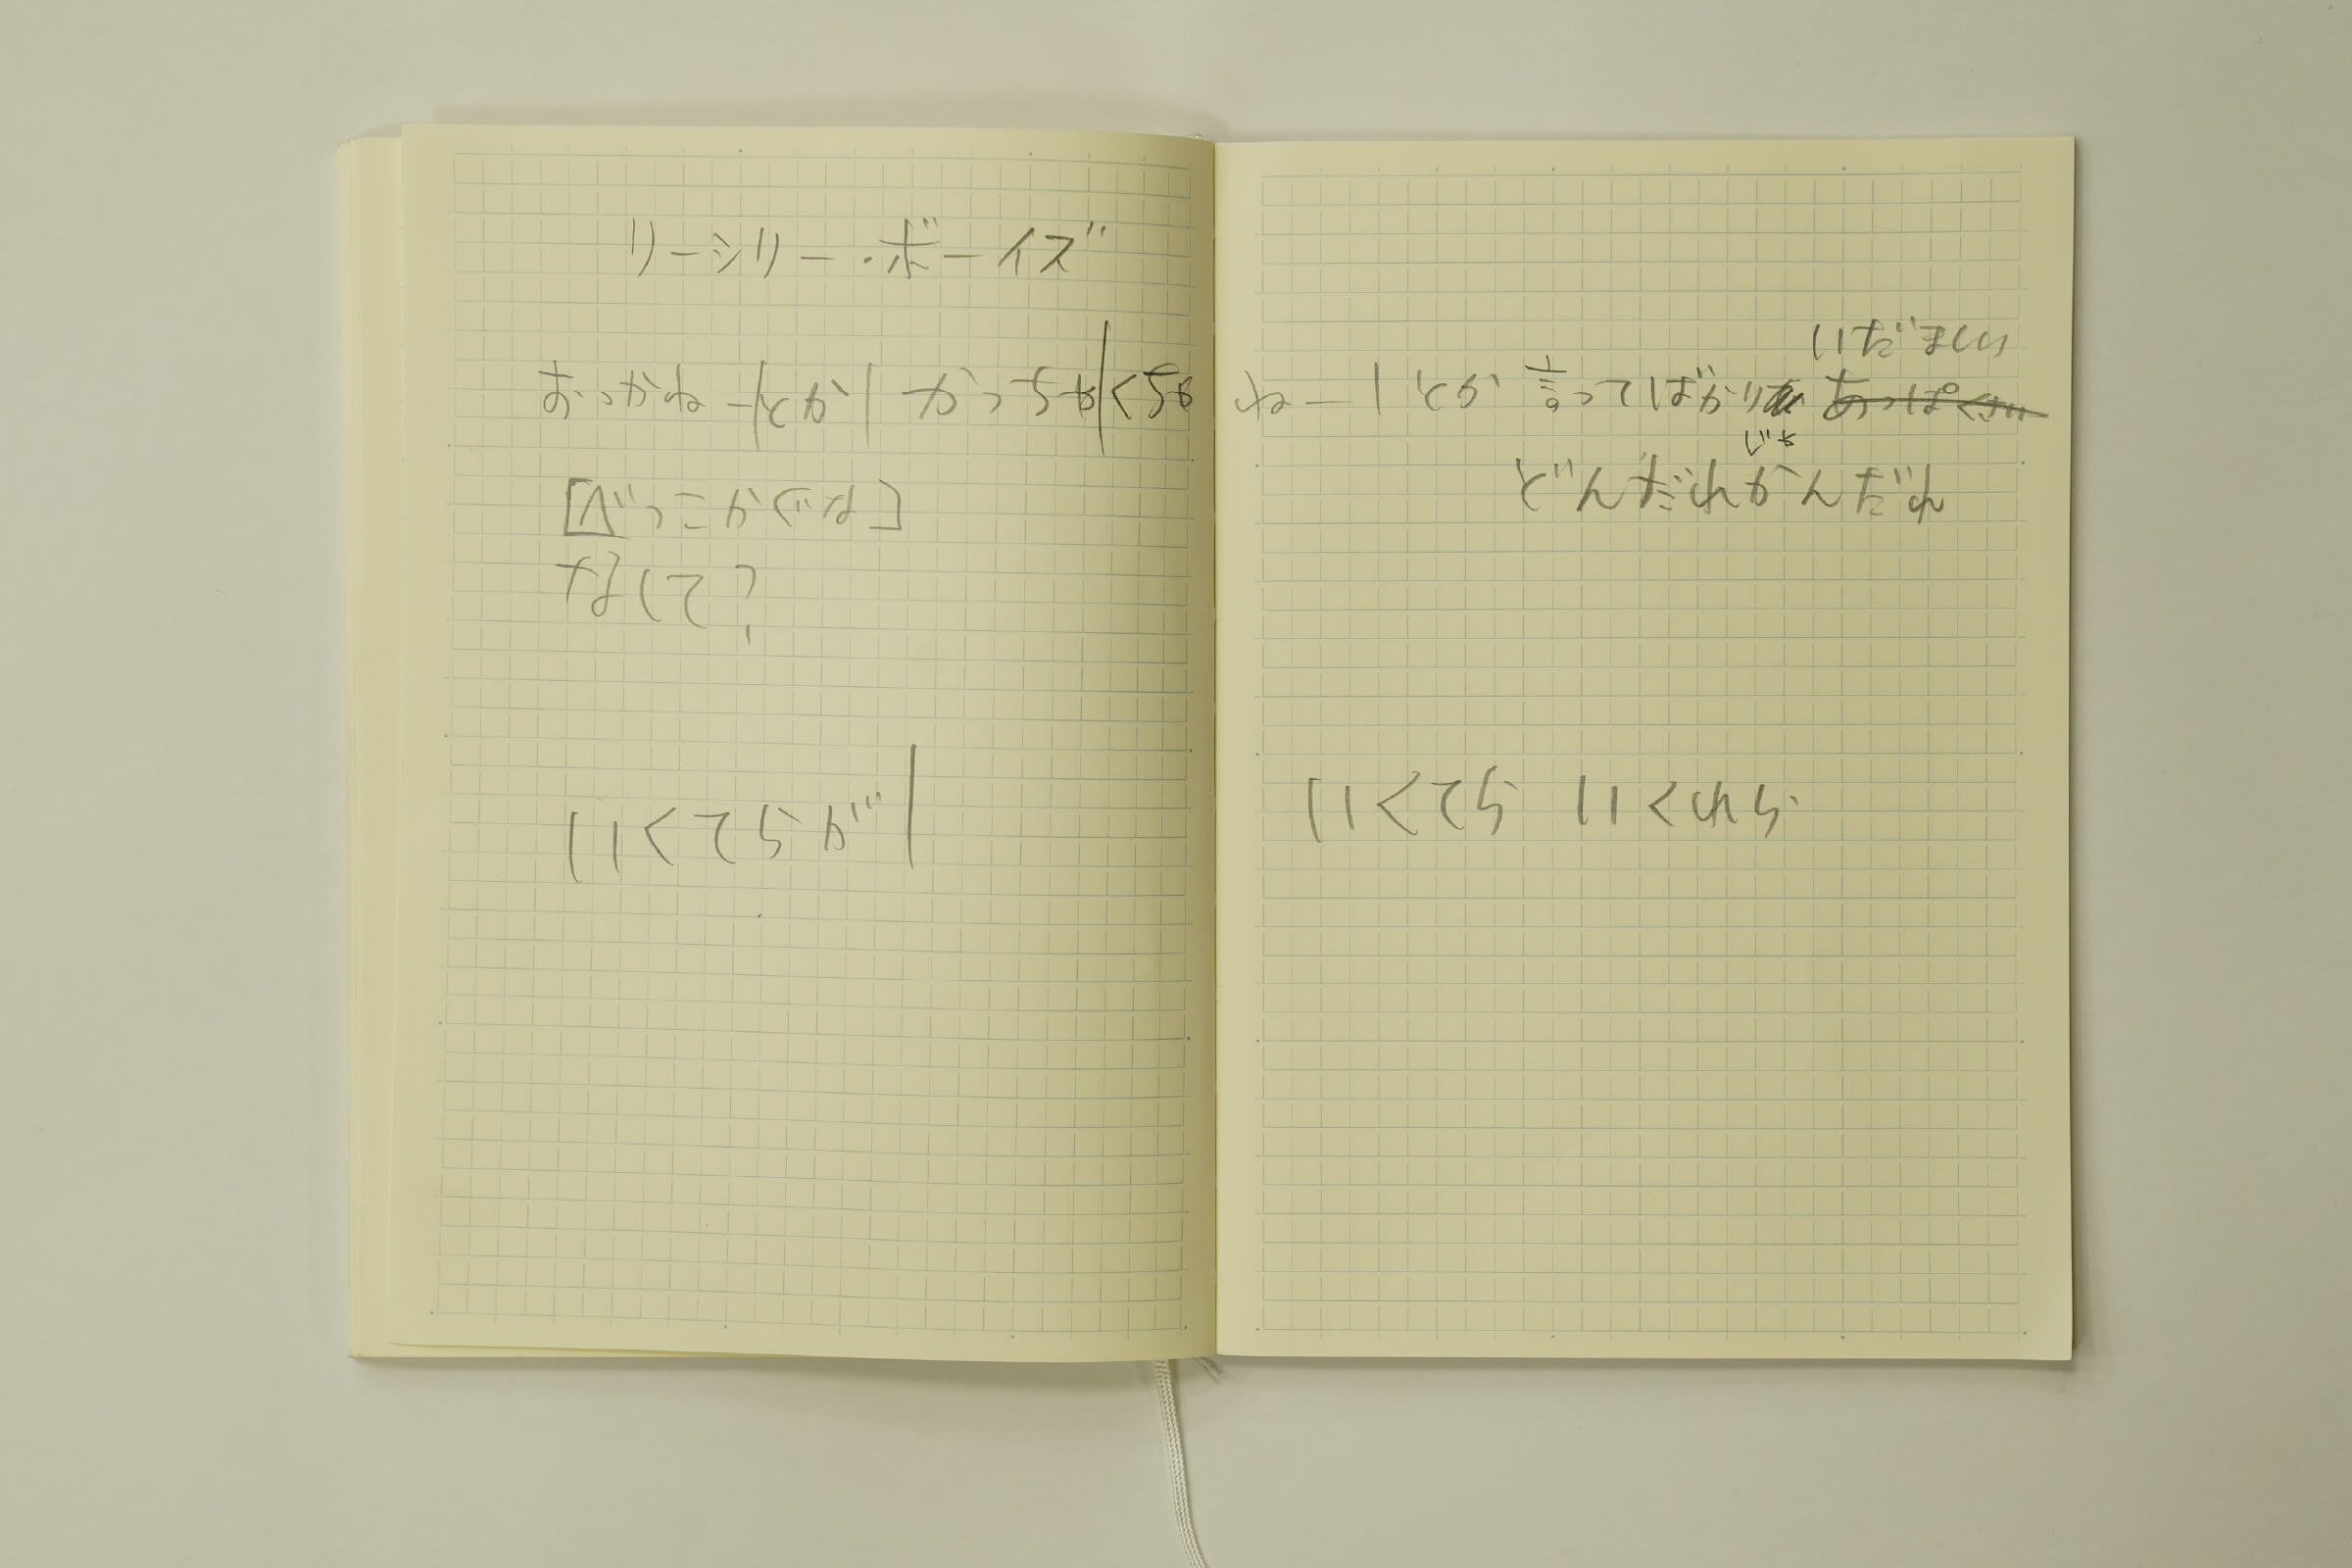 リーシリー・ボーイズ
おっかねー|とか|かっちゃ|くちゃ
[べっこかぐな]
なして?
いくてらが|
いだましい
ねー|とか言ってばかり あっぱくさい
じゃ
どんだれかんだれ
いくてら いくれら